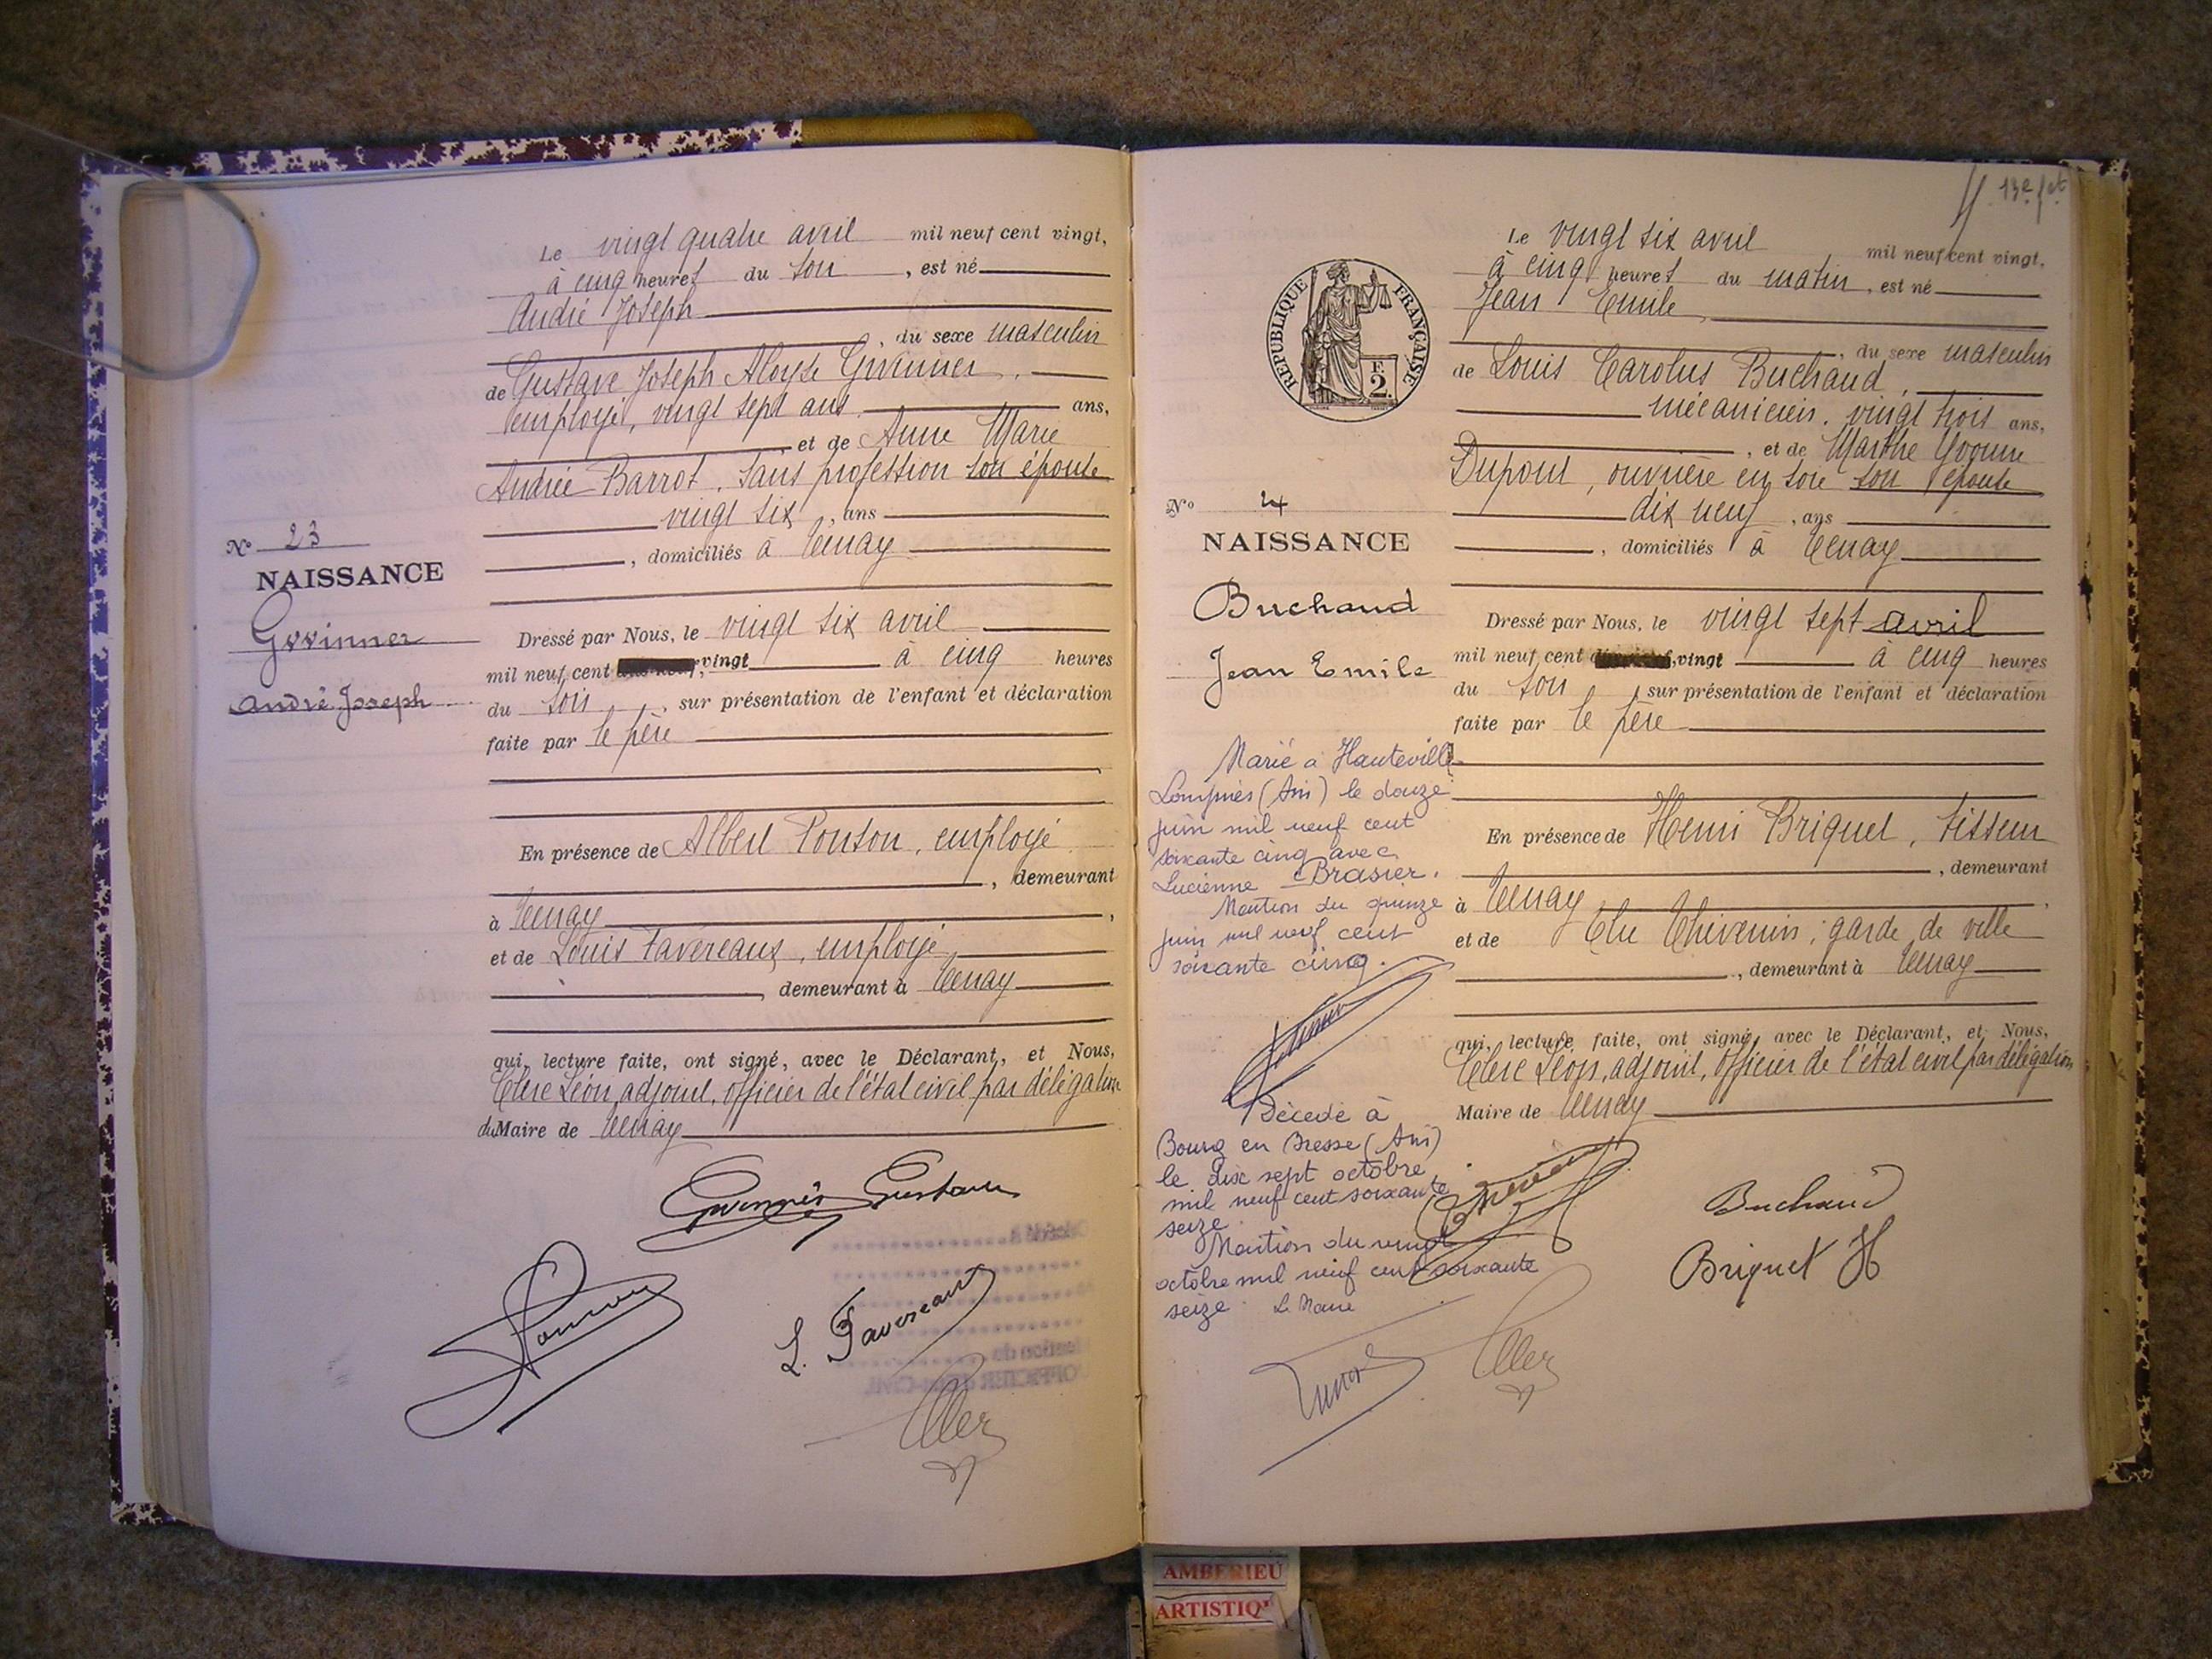 Le vingt quatre avril mil neuf cent vingt,
à cinq heures du soir, est né
André Joseph
, du sexe masculin
de Gustave Joseph Aloyse Gwinner,
employé, vingt sept ans ans,
et de Anne Marie
Andrée Barrot, sans profession son épouse
vingt six, ans
, domiciliés à Tenay
No 23
NAISSANCE
Gwinner
André Joseph
Dressé par Nous, le vingt six avril
mil neuf cent vingt à cinq heures
du soir, sur présentation de l'enfant et déclaration
faite par le père
En présence de Albert Ponson, employé
, demeurant
à Tenay,
et de Louis Favereaux, employé
, demeurant à Tenay
qui, lecture faite, ont signé, avec le Déclarant, et Nous,
Clerc Léon, adjoint, officier de l'état civil par délégation
du Maire de Tenay
Gwinner Gustave
L. Favereaux
13e ft
Le vingt six avril mil neuf cent vingt,
à cinq heures du matin, est né
Jean Emile
, du sexe masculin
REPUBLIQUE FRANÇAISE
F.
2.
de Louis Carolus Buchaud,
mécanicien, vingt trois ans,
, et de Marthe Yvonne
Dupont, ouvrière en soie son épouse
dix neuf, ans
, domiciliés à Tenay
No 24
NAISSANCE
Buchaud
Jean Emile
Dressé par Nous, le vingt sept avril
mil neuf cent vingt à cinq heures
du soir, sur présentation de l'enfant et déclaration
faite par le père
En présence de Henri Briquet, tisseur
, demeurant
à Tenay,
et de Thévenin, garde de ville
, demeurant à Tenay
qui, lecture faite, ont signé, avec le Déclarant, et Nous,
Clerc Léon, adjoint, officier de l'état civil par délégation
Maire de Tenay
Marié à Hauteville
Lompnès (Ain) le douze
juin mil neuf cent
soixante cinq avec
Lucienne Brasier.
Mention du quinze
juin mil neuf cent
soixante cinq.
Décédé à
Bourg en Bresse (Ain)
le dix sept octobre
mil neuf cent soixante
seize.
Mention du vingt
octobre mil neuf cent soixante
seize. Le Maire
Buchaud
Briquet H
AMBERIEU
ARTISTIQ